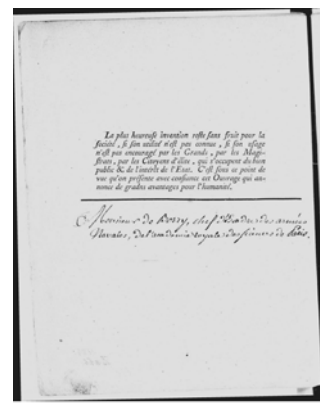 La plus heureuse invention reste sans fruit pour la
société, si son utilité n'est pas connue, si son usage
n'est pas encouragé par les Grands, par les Magi-
strats, par les Citoyens d'élite, qui s'occupent du bien
public & de l'intérêt de l'Etat. C'est sous ce point de
vue qu'on présente avec confiance cet Ouvrage qui an-
nonce de grands avantages pour l'humanité.
Monsieur de Rossy, chef d'Escadre des armées
Navales, de l'académie royale des siances de Paris.